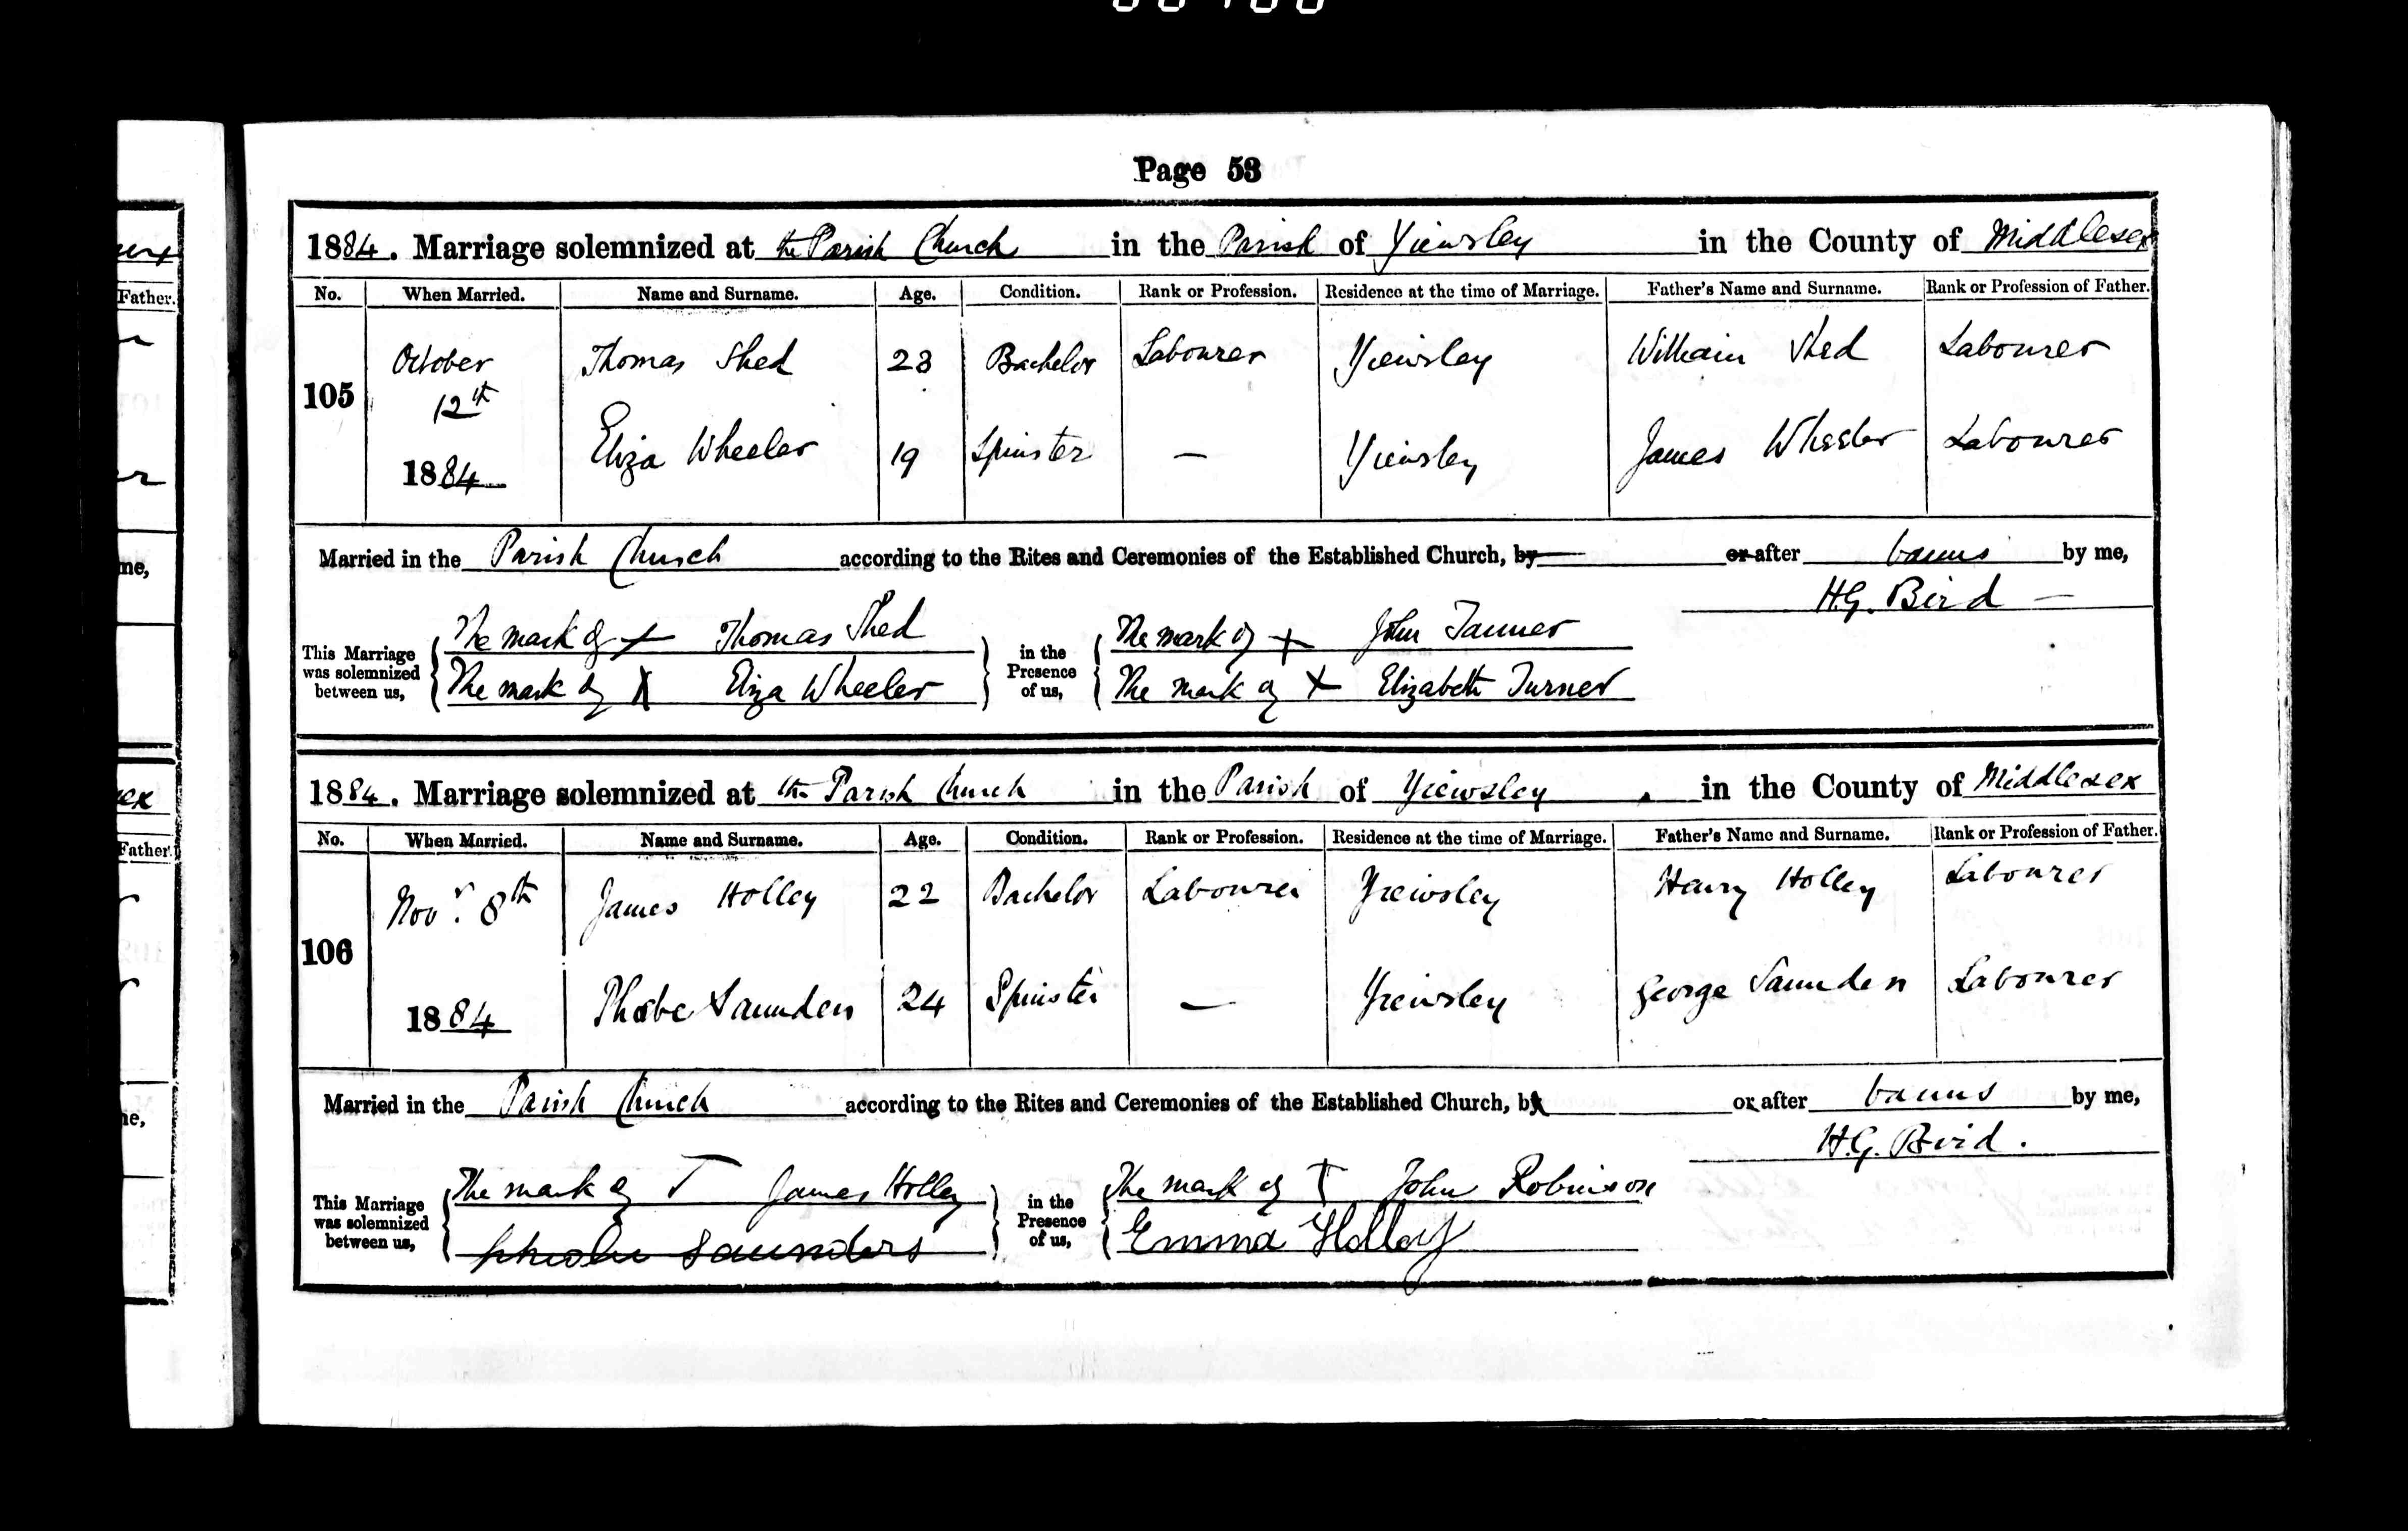 Page 53
1884. Marriage solemnized at the Parish Church in the Parish of Yiewsley in the County of Middlesex
No. When Married. Name and Surname. Age. Condition. Rank or Profession. Residence at the time of Marriage. Father's Name and Surname. Rank or Profession of Father.
105 October 12th 1884
Thomas Shed 23 Bachelor Labourer Yiewsley William Shed Labourer
Eliza Wheeler 19 Spinster — Yiewsley James Wheeler Labourer
Married in the Parish Church according to the Rites and Ceremonies of the Established Church, by or after banns by me,
H.G. Bird —
This Marriage was solemnized between us,
The mark of X Thomas Shed
The mark of X Eliza Wheeler
in the Presence of us,
The mark of X John Tanner
The mark of X Elizabeth Turner
1884. Marriage solemnized at the Parish Church in the Parish of Yiewsley in the County of Middlesex
No. When Married. Name and Surname. Age. Condition. Rank or Profession. Residence at the time of Marriage. Father's Name and Surname. Rank or Profession of Father.
106 Novr. 8th 1884
James Holley 22 Bachelor Labourer Yiewsley Henry Holley Labourer
Phœbe Saunders 24 Spinster — Yiewsley George Saunders Labourer
Married in the Parish Church according to the Rites and Ceremonies of the Established Church, by or after banns by me,
H.G. Bird.
This Marriage was solemnized between us,
The mark of T James Holley
saunders
in the Presence of us,
The mark of T John Robinson
Emma Holley
Father.
me,
ex
Father.